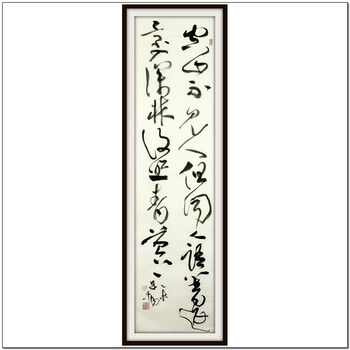 空山不見人但聞人語響返
景入深林復照青苔上